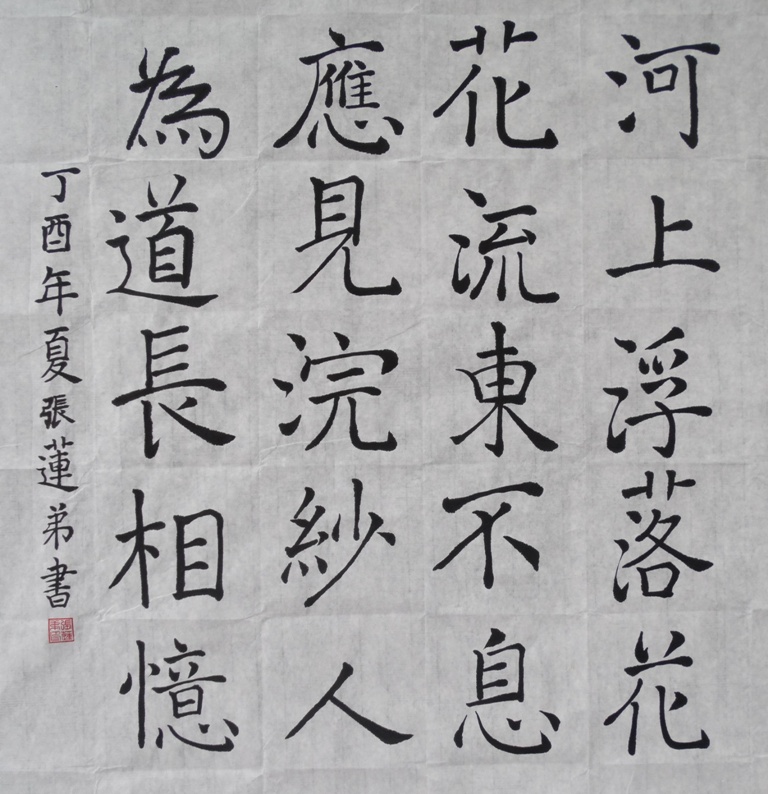 河上浮落花
花流東不息
應見浣紗人
為道長相憶
丁酉年夏張蓮弟書